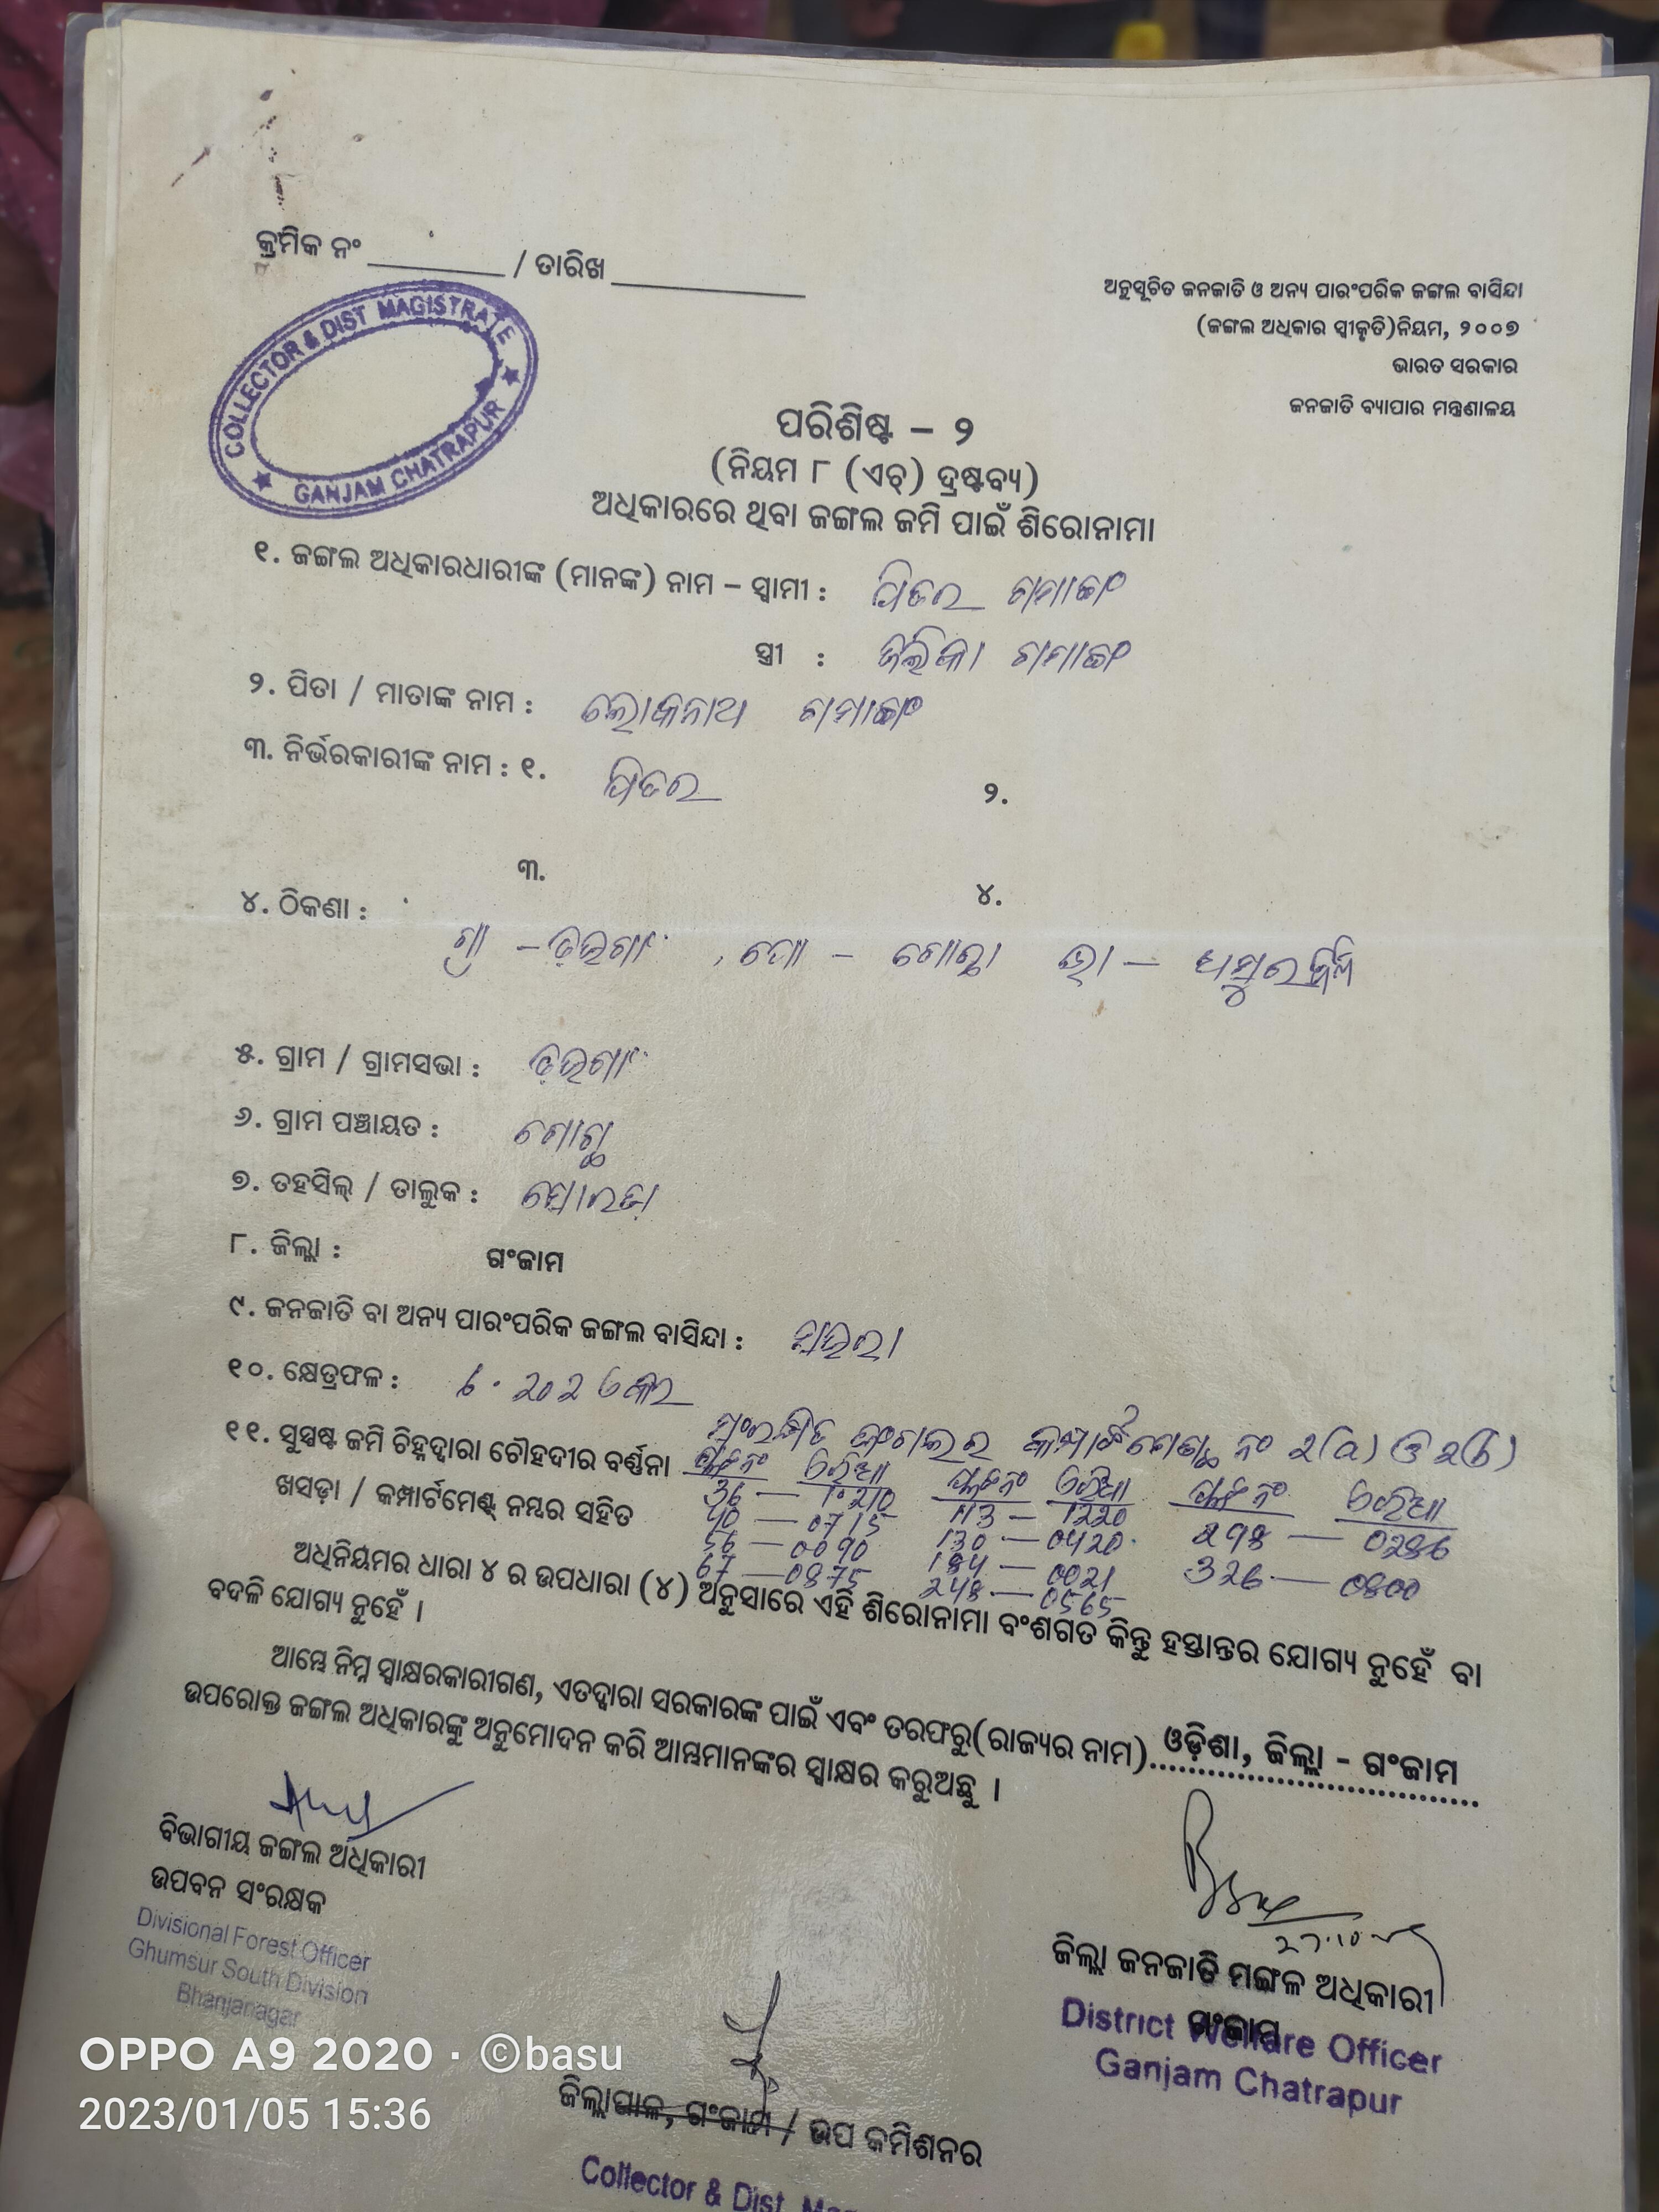 କ୍ରମିକ ନଂ / ତାରିଖ
ଅନୁସୂଚିତ ଜନଜାତି ଓ ଅନ୍ୟ ପାରଂପରିକ ଜଙ୍ଗଲ ବାସିନ୍ଦା
(ଜଙ୍ଗଲ ଅଧିକାର ସ୍ୱୀକୃତି)ନିୟମ, ୨୦୦୭
ଭାରତ ସରକାର
ଜନଜାତି ବ୍ୟାପାର ମନ୍ତ୍ରଣାଳୟ
COLLECTOR & DIST MAGISTRATE
GANJAM CHATRAPUR
ପରିଶିଷ୍ଟ – ୨
(ନିୟମ ୮ (ଏଚ୍) ଦ୍ରଷ୍ଟବ୍ୟ)
ଅଧିକାରରେ ଥିବା ଜଙ୍ଗଲ ଜମି ପାଇଁ ଶିରୋନାମା
୧. ଜଙ୍ଗଲ ଅଧିକାରଧାରୀଙ୍କ (ମାନଙ୍କ) ନାମ – ସ୍ୱାମୀ : ପିତର ଗମାଙ୍ଗ
ସ୍ତ୍ରୀ : ଜିଲିକା ଗମାଙ୍ଗ
୨. ପିତା / ମାତାଙ୍କ ନାମ : ଲୋକନାଥ ଗମାଙ୍ଗ
୩. ନିର୍ଭରକାରୀଙ୍କ ନାମ : ୧. ପିତର
୨.
୩.
୪.
୪. ଠିକଣା : ଗ୍ରା – , ପୋ – ଭା –
୫. ଗ୍ରାମ / ଗ୍ରାମସଭା :
୬. ଗ୍ରାମ ପଞ୍ଚାୟତ :
୭. ତହସିଲ୍ / ତାଲୁକ : ସୋରଡ଼ା
୮. ଜିଲ୍ଲା : ଗଂଜାମ
୯. ଜନଜାତି ବା ଅନ୍ୟ ପାରଂପରିକ ଜଙ୍ଗଲ ବାସିନ୍ଦା :
୧୦. କ୍ଷେତ୍ରଫଳ : ୬.202 ଏକର
୧୧. ସୁସ୍ପଷ୍ଟ ଜମି ଚିହ୍ନଦ୍ୱାରା ଚୌହଦୀର ବର୍ଣ୍ଣନା
ଖସଡ଼ା / କମ୍ପାର୍ଟମେଣ୍ଟ ନମ୍ବର ସହିତ
36 — 1.210
40 — 0715
56 — 0090
67 — 0875
113 — 1220
130 — 0420
184 — 0021
248 — 0565
326 — 0800
ଅଧିନିୟମର ଧାରା ୪ ର ଉପଧାରା (୪) ଅନୁସାରେ ଏହି ଶିରୋନାମା ବଂଶଗତ କିନ୍ତୁ ହସ୍ତାନ୍ତର ଯୋଗ୍ୟ ନୁହେଁ ବା
ବଦଳି ଯୋଗ୍ୟ ନୁହେଁ ।
ଆମ୍ଭେ ନିମ୍ନ ସ୍ୱାକ୍ଷରକାରୀଗଣ, ଏତଦ୍ଦ୍ୱାରା ସରକାରଙ୍କ ପାଇଁ ଏବଂ ତରଫରୁ(ରାଜ୍ୟର ନାମ) ଓଡ଼ିଶା, ଜିଲ୍ଲା - ଗଂଜାମ
ଉପରୋକ୍ତ ଜଙ୍ଗଲ ଅଧିକାରଙ୍କୁ ଅନୁମୋଦନ କରି ଆମ୍ଭମାନଙ୍କର ସ୍ୱାକ୍ଷର କରୁଅଛୁ ।
ବିଭାଗୀୟ ଜଙ୍ଗଲ ଅଧିକାରୀ
ଉପବନ ସଂରକ୍ଷକ
Divisional Forest Officer
Ghumsur South Division
Bhanjanagar
ଜିଲ୍ଲା ଜନଜାତି ମଙ୍ଗଳ ଅଧିକାରୀ
ଗଂଜାମ
District Welfare Officer
Ganjam Chatrapur
ଜିଲ୍ଲାପାଳ, ଗଂଜାମ / ଉପ କମିଶନର
Collector & Dist.
OPPO A9 2020 · ©basu
2023/01/05 15:36